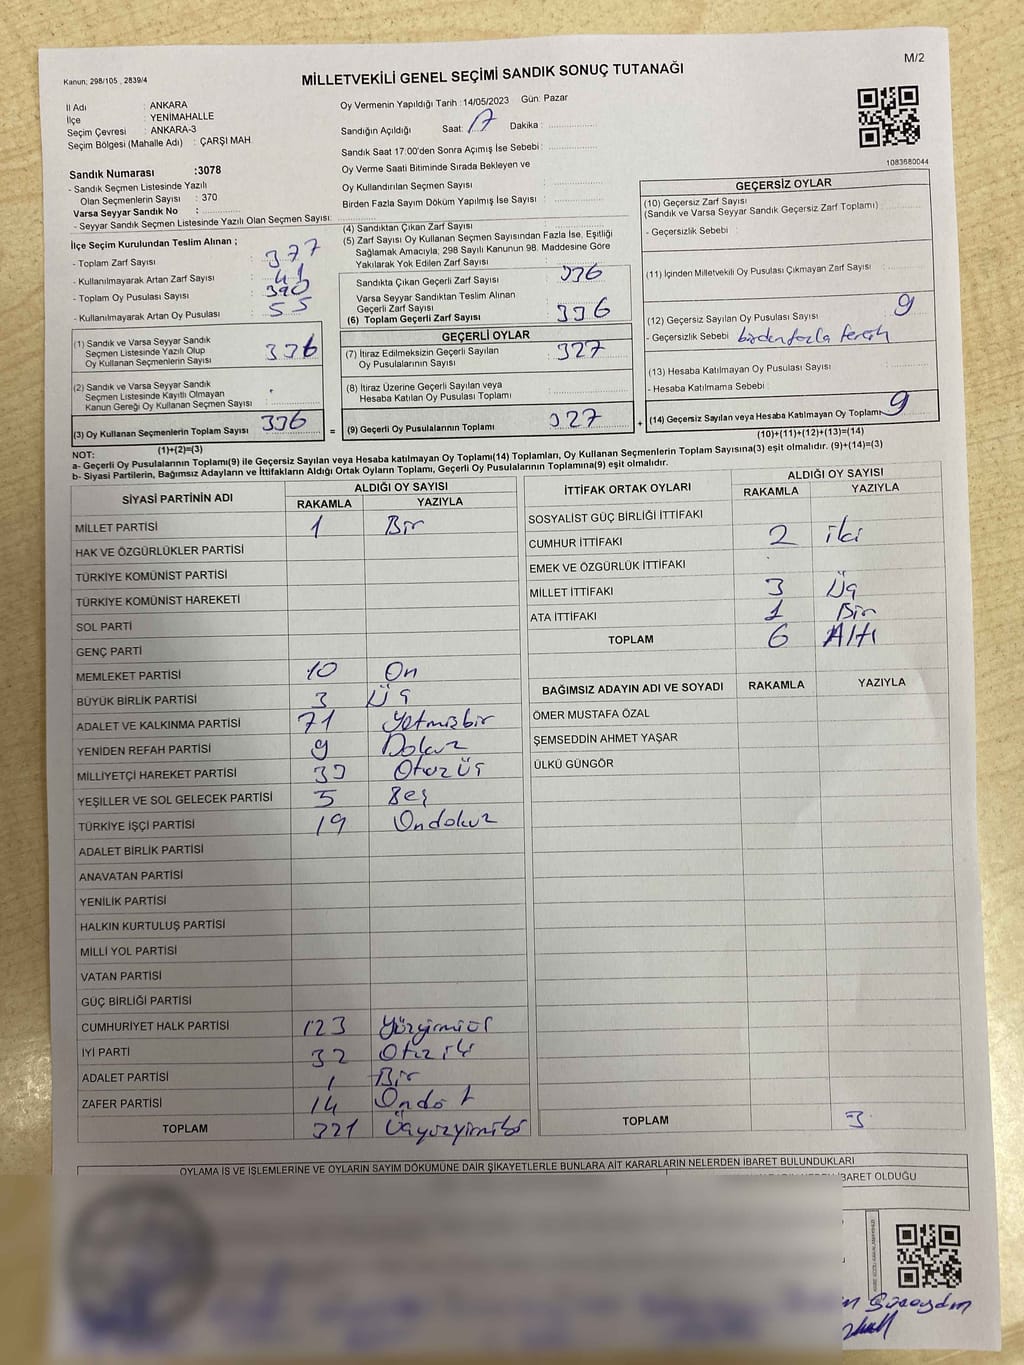 M/2
Kanun: 298/105 , 2839/4
MİLLETVEKİLİ GENEL SEÇİMİ SANDIK SONUÇ TUTANAĞI
İl Adı : ANKARA
İlçe : YENİMAHALLE
Seçim Çevresi : ANKARA-3
Seçim Bölgesi (Mahalle Adı) : ÇARŞI MAH.
Sandık Numarası :3078
- Sandık Seçmen Listesinde Yazılı
Olan Seçmenlerin Sayısı : 370
Varsa Seyyar Sandık No :
- Seyyar Sandık Seçmen Listesinde Yazılı Olan Seçmen Sayısı:
Oy Vermenin Yapıldığı Tarih :14/05/2023 Gün: Pazar
Sandığın Açıldığı Saat: 17 Dakika :
Sandık Saat 17:00'den Sonra Açımış İse Sebebi :
Oy Verme Saati Bitiminde Sırada Bekleyen ve
Oy Kullandırılan Seçmen Sayısı :
Birden Fazla Sayım Döküm Yapılmış İse Sayısı :
1083680044
İlçe Seçim Kurulundan Teslim Alınan ;
- Toplam Zarf Sayısı : 377
- Kullanılmayarak Artan Zarf Sayısı : 41
- Toplam Oy Pusulası Sayısı : 390
- Kullanılmayarak Artan Oy Pusulası : 55
(1) Sandık ve Varsa Seyyar Sandık
Seçmen Listesinde Yazılı Olup
Oy Kullanan Seçmenlerin Sayısı : 336
(2) Sandık ve Varsa Seyyar Sandık
Seçmen Listesinde Kayıtlı Olmayan
Kanun Gereği Oy Kullanan Seçmen Sayısı :
(3) Oy Kullanan Seçmenlerin Toplam Sayısı 336
(1)+(2)=(3)
(4) Sandıktan Çıkan Zarf Sayısı :
(5) Zarf Sayısı Oy Kullanan Seçmen Sayısından Fazla İse, Eşitliği
Sağlamak Amacıyla; 298 Sayılı Kanunun 98. Maddesine Göre
Yakılarak Yok Edilen Zarf Sayısı :
Sandıkta Çıkan Geçerli Zarf Sayısı : 336
Varsa Seyyar Sandıktan Teslim Alınan
Geçerli Zarf Sayısı :
(6) Toplam Geçerli Zarf Sayısı : 336
GEÇERLİ OYLAR
(7) İtiraz Edilmeksizin Geçerli Sayılan
Oy Pusulalarının Sayısı : 327
(8) İtiraz Üzerine Geçerli Sayılan veya
Hesaba Katılan Oy Pusulası Toplamı :
= (9) Geçerli Oy Pusulalarının Toplamı : 327 +
GEÇERSİZ OYLAR
(10) Geçersiz Zarf Sayısı
(Sandık ve Varsa Seyyar Sandık Geçersiz Zarf Toplamı) :
- Geçersizlik Sebebi :
(11) İçinden Milletvekili Oy Pusulası Çıkmayan Zarf Sayısı :
(12) Geçersiz Sayılan Oy Pusulası Sayısı : 9
- Geçersizlik Sebebi : birden fazla tercih
(13) Hesaba Katılmayan Oy Pusulası Sayısı :
- Hesaba Katılmama Sebebi :
(14) Geçersiz Sayılan veya Hesaba Katılmayan Oy Toplamı: 9
(10)+(11)+(12)+(13)=(14)
NOT:
a- Geçerli Oy Pusulalarının Toplamı(9) ile Geçersiz Sayılan veya Hesaba katılmayan Oy Toplamı(14) Toplamları, Oy Kullanan Seçmenlerin Toplam Sayısına(3) eşit olmalıdır. (9)+(14)=(3)
b- Siyasi Partilerin, Bağımsız Adayların ve İttifakların Aldığı Ortak Oyların Toplamı, Geçerli Oy Pusulalarının Toplamına(9) eşit olmalıdır.
SİYASİ PARTİNİN ADI ALDIĞI OY SAYISI
RAKAMLA YAZIYLA
MİLLET PARTİSİ 1 Bir
HAK VE ÖZGÜRLÜKLER PARTİSİ
TÜRKİYE KOMÜNİST PARTİSİ
TÜRKİYE KOMÜNİST HAREKETİ
SOL PARTİ
GENÇ PARTİ
MEMLEKET PARTİSİ 10 On
BÜYÜK BİRLİK PARTİSİ 3 Üç
ADALET VE KALKINMA PARTİSİ 71 Yetmişbir
YENİDEN REFAH PARTİSİ 9 Dokuz
MİLLİYETÇİ HAREKET PARTİSİ 33 Otuz Üç
YEŞİLLER VE SOL GELECEK PARTİSİ 5 Beş
TÜRKİYE İŞÇİ PARTİSİ 19 Ondokuz
ADALET BİRLİK PARTİSİ
ANAVATAN PARTİSİ
YENİLİK PARTİSİ
HALKIN KURTULUŞ PARTİSİ
MİLLİ YOL PARTİSİ
VATAN PARTİSİ
GÜÇ BİRLİĞİ PARTİSİ
CUMHURİYET HALK PARTİSİ 123 Yüzyirmiüç
İYİ PARTİ 32 Otuz iki
ADALET PARTİSİ 1 Bir
ZAFER PARTİSİ 14 Ondört
TOPLAM 321 Üçyüzyirmibir
İTTİFAK ORTAK OYLARI ALDIĞI OY SAYISI
RAKAMLA YAZIYLA
SOSYALİST GÜÇ BİRLİĞİ İTTİFAKI
CUMHUR İTTİFAKI 2 iki
EMEK VE ÖZGÜRLÜK İTTİFAKI
MİLLET İTTİFAKI 3 Üç
ATA İTTİFAKI 1 Bir
TOPLAM 6 Altı
BAĞIMSIZ ADAYIN ADI VE SOYADI RAKAMLA YAZIYLA
ÖMER MUSTAFA ÖZAL
ŞEMSEDDİN AHMET YAŞAR
ÜLKÜ GÜNGÖR
TOPLAM 3
OYLAMA İŞ VE İŞLEMLERİNE VE OYLARIN SAYIM DÖKÜMÜNE DAİR ŞİKAYETLERLE BUNLARA AİT KARARLARIN NELERDEN İBARET BULUNDUKLARI
İBARET OLDUĞU